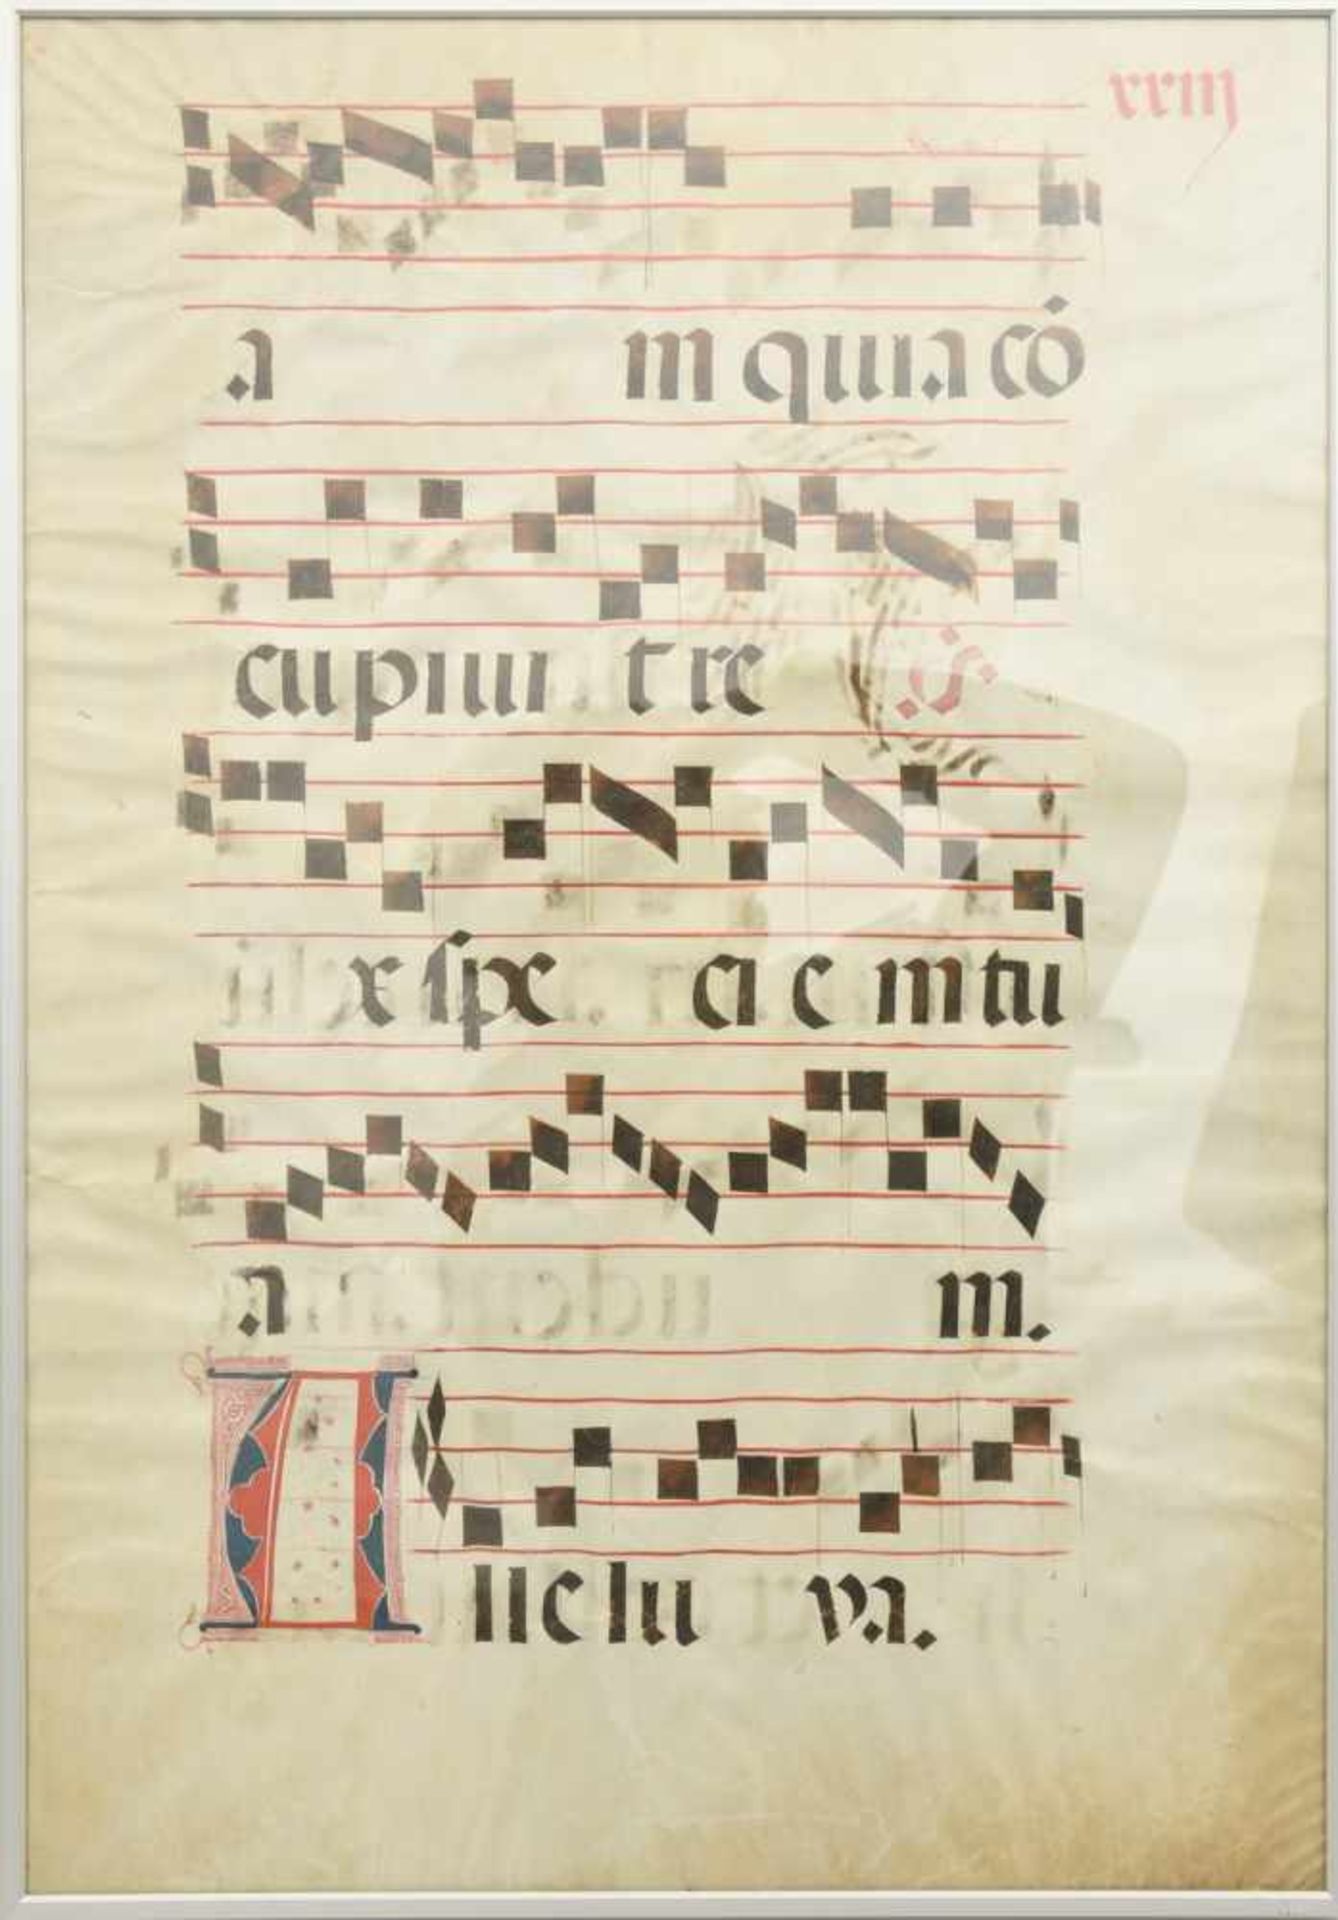 xxiij
a m quia cō
cupiui t re
is
x spe ci e m tu
a m.
Alle lu ya.